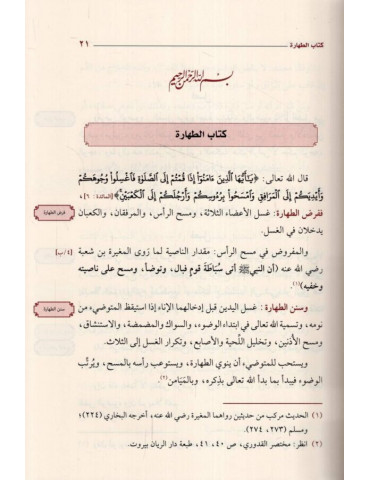 كتاب الطهارة ٢١
بسم الله الرحمن الرحيم
كتاب الطهارة
قال الله تعالى: ﴿يَٰٓأَيُّهَا ٱلَّذِينَ ءَامَنُوٓا۟ إِذَا قُمْتُمْ إِلَى ٱلصَّلَوٰةِ فَٱغْسِلُوا۟ وُجُوهَكُمْ
وَأَيْدِيَكُمْ إِلَى ٱلْمَرَافِقِ وَٱمْسَحُوا۟ بِرُءُوسِكُمْ وَأَرْجُلَكُمْ إِلَى ٱلْكَعْبَيْنِ﴾ [المائدة: ٦]،
ففرض الطهارة: غسل الأعضاء الثلاثة، ومسح الرأس، والمرفقان، والكعبان
فرض الطهارة
يدخلان في الغسل.
والمفروض في مسح الرأس: مقدار الناصية لما رَوى المغيرة بن شعبة
[١/ب]
رضي الله عنه (أن النبي ﷺ أتى سُبَاطَةَ قوم فبال، وتوضأ، ومسح على ناصيته
وخفيه)(١).
وسنن الطهارة: غسل اليدين قبل إدخالهما الإناء إذا استيقظ المتوضيء من
سنن الطهارة
نومه، وتسمية الله تعالى في ابتداء الوضوء، والسواك والمضمضة، والاستنشاق،
ومسح الأُذنين، وتخليل اللّحية والأصابع، وتكرار الغسل إلى الثلاث.
ويستحب للمتوضيء أن ينوي الطهارة، ويستوعب رأسه بالمسح، ويُرتِّب
الوضوء فيبدأ بما بدأ الله تعالى بذِكره، وبالمَيَامن(٢).
(١) الحديث مركب من حديثين رواهما المغيرة رضي الله عنه، أخرجه البخاري (٢٢٤)؛
ومسلم (٢٧٣، ٢٧٤).
(٢) انظر: مختصر القدوري، ص ٤٠، ٤١، طبعة دار الريان بيروت.